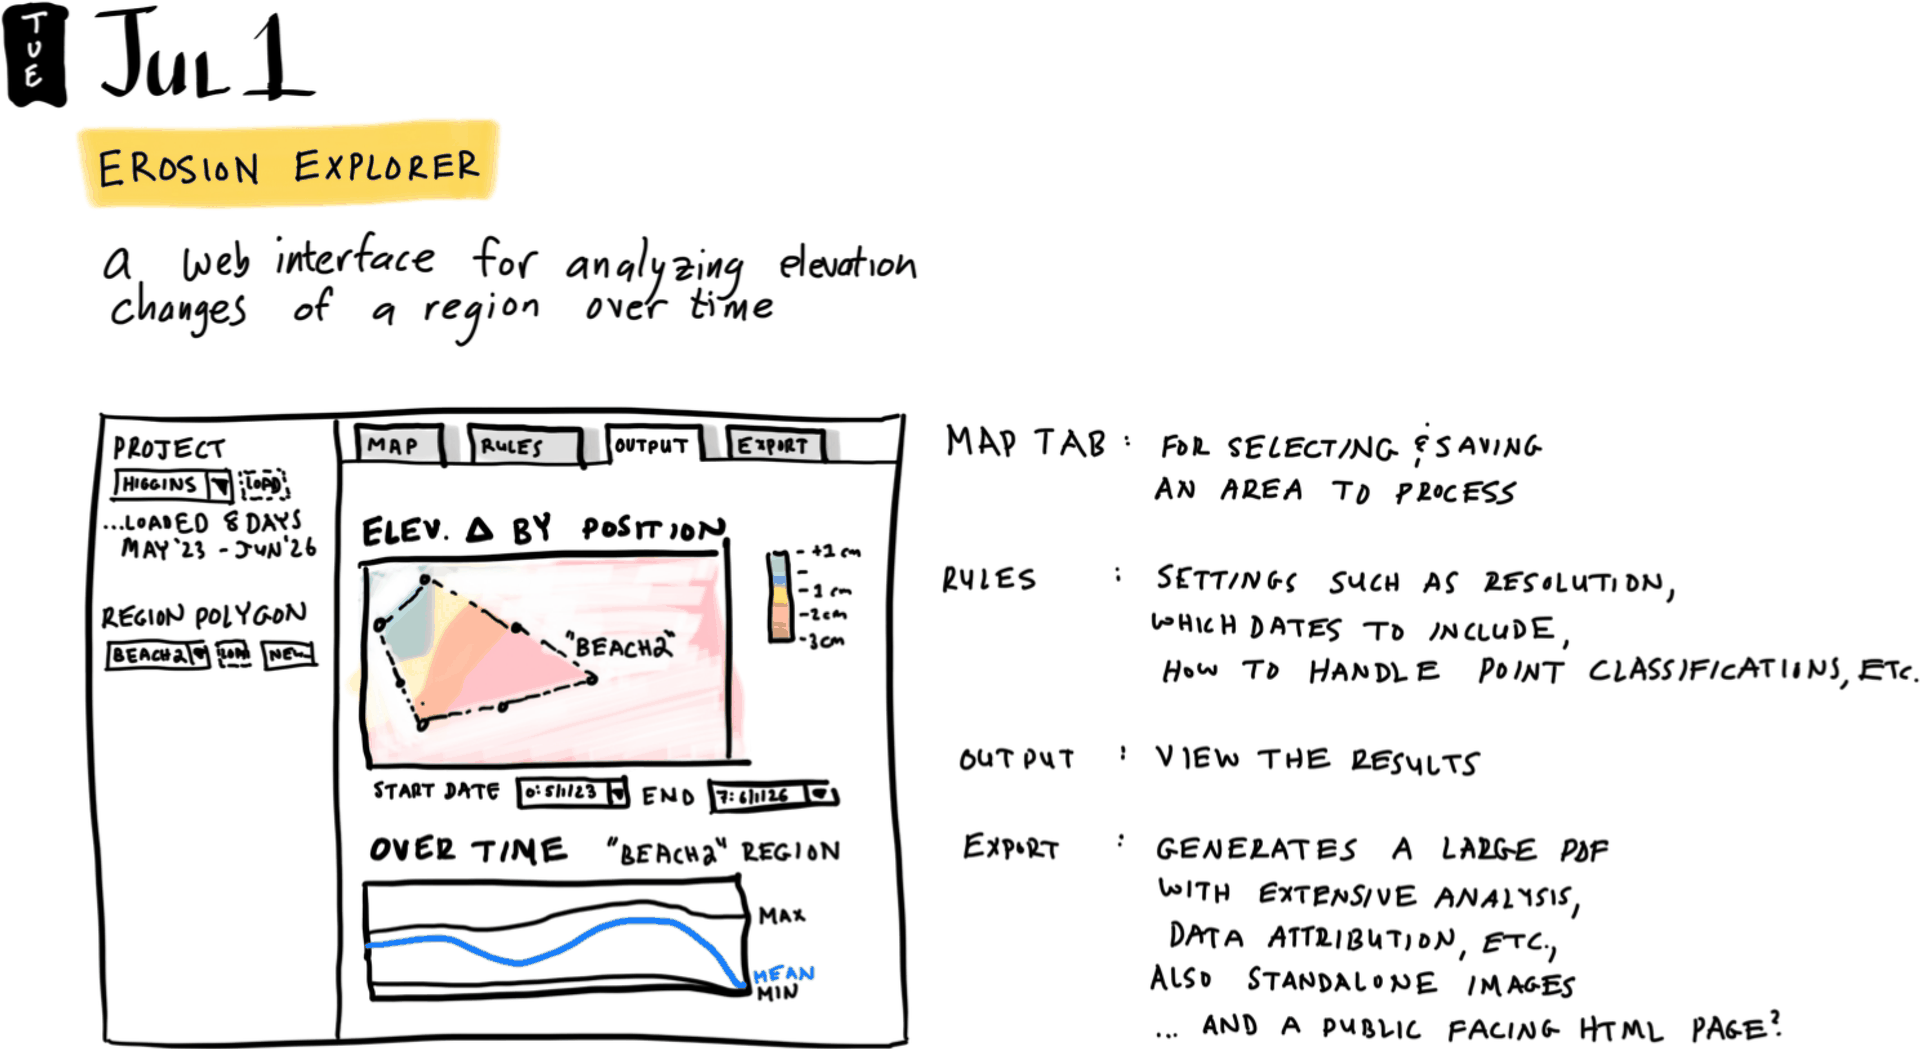 TUE
Jul 1
EROSION EXPLORER
a web interface for analyzing elevation
changes of a region over time
PROJECT
HIGGINS LOAD
...LOADED 8 DAYS
MAY '23 - JUN '26
REGION POLYGON
BEACH2 LOAD NEW
MAP RULES OUTPUT EXPORT
ELEV. Δ BY POSITION
"BEACH2"
+1 cm
-1 cm
-2cm
-3cm
START DATE 0: 5/1/23 END 7: 6/1/26
OVER TIME "BEACH2" REGION
MAX
MEAN
MIN
MAP TAB : FOR SELECTING & SAVING
AN AREA TO PROCESS
RULES : SETTINGS SUCH AS RESOLUTION,
WHICH DATES TO INCLUDE,
HOW TO HANDLE POINT CLASSIFICATIONS, ETC.
OUTPUT : VIEW THE RESULTS
EXPORT : GENERATES A LARGE PDF
WITH EXTENSIVE ANALYSIS,
DATA ATTRIBUTION, ETC.,
ALSO STANDALONE IMAGES
... AND A PUBLIC FACING HTML PAGE?